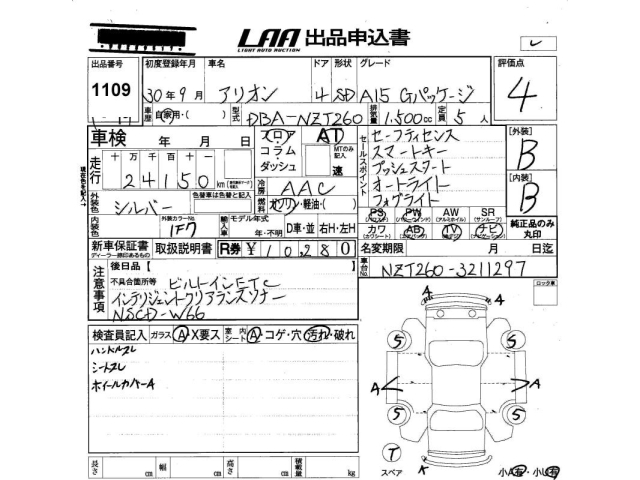 LAA 出品申込書
LIGHT AUTO AUCTION
出品番号 初度登録年月 車名 ドア 形状 グレード 評価点
1109 30年9月 アリオン 4 SD A15 Gパッケージ 4
車歴 自家用・( ) 型式 DBA-NZT260 排気量 1,500cc 定員 5人
車検 年 月 日 フロア AT セールスポイント セーフティセンス [外装]
コラム・ MTのみ記入 スマートキー B
走行 十 万 千 百 十 一 ダッシュ 速 プッシュスタート
2 4 1 5 0 km 冷房 AAC オートライト [内装]
外装色 シルバー 色替車は色替と記入 燃料 ガソリン・軽油・( ) フォグライト B
PS PW AW SR
(パワーステアリング) (パワーウインド) (アルミホイル) (サンルーフ)
外装カラーNo. 1F7 輸入車 モデル年式 年・不明 D車・並 右H・左H カワ AB TV ナビ 純正品のみ丸印
(カワシート) (エアバッグ) (テレビ) (ナビゲーション)
新車保証書 取扱説明書 R券 ¥10,280 名変期限 月 日迄
ディーラー印があるもの
注意事項 後日品 [ ] 車台No. NZT260-3211297
不具合箇所等 ビルトインETC ロック車
インテリジェントクリアランスソナー
NSCD-W66
検査員記入 ガラス A X要ス 室内シート A・コゲ・穴 汚れ・破れ
ハンドルスレ
シートスレ
ホイールカバーA
A A
5 5
A A
5 5
T A
スペア 小A有・小U有
長さ cm 幅 cm 高さ cm 積載量 kg